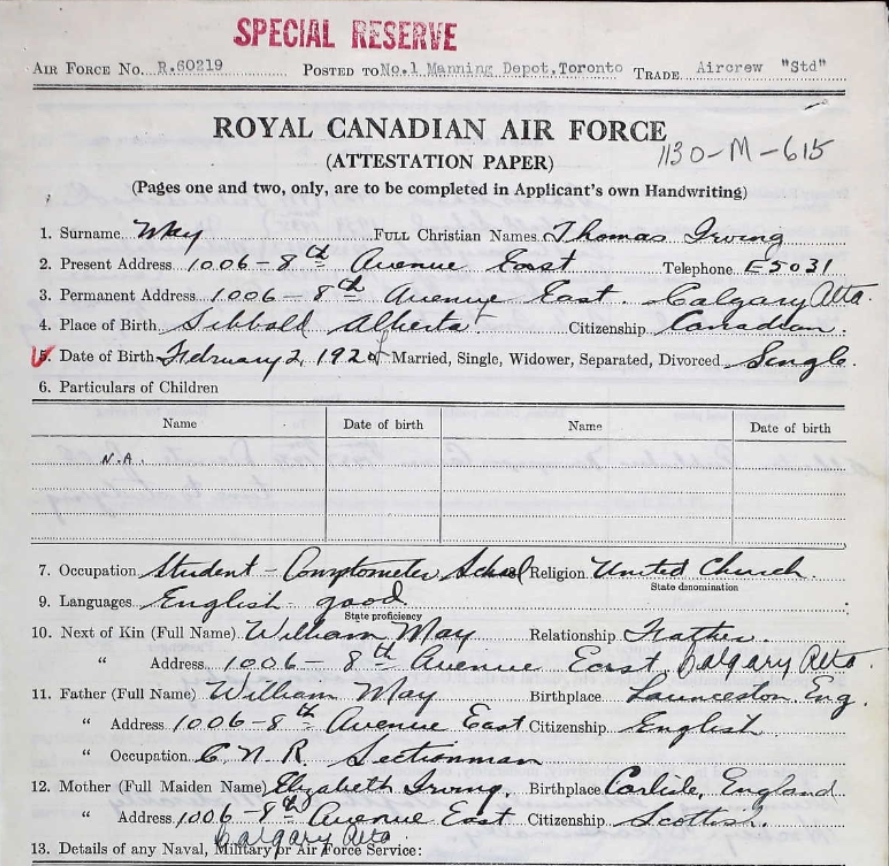 SPECIAL RESERVE
AIR FORCE NO. R.60219 POSTED TO No.1 Manning Depot, Toronto TRADE Aircrew "Std"
ROYAL CANADIAN AIR FORCE
1130-M-615
(ATTESTATION PAPER)
(Pages one and two, only, are to be completed in Applicant's own Handwriting)
1. Surname May FULL Christian Names Thomas Irving
2. Present Address 1006-8th Avenue East Telephone E5031
3. Permanent Address 1006-8th Avenue East. Calgary Alta.
4. Place of Birth Sibbald Alberta. Citizenship Canadian.
5. Date of Birth February 2, Married, Single, Widower, Separated, Divorced Single.
6. Particulars of Children
Name Date of birth Name Date of birth
N.A.
7. Occupation Student - Comptometer School Religion United Church.
State denomination
9. Languages English - good.
State proficiency
10. Next of Kin (Full Name) William May Relationship Father.
" Address 1006-8th Avenue East Calgary Alta.
11. Father (Full Name) William May Birthplace Launceston Eng.
" Address 1006-8th Avenue East Citizenship English.
" Occupation C.N.R. Sectionman
12. Mother (Full Maiden Name) Elizabeth Irving. Birthplace Carlisle, England
" Address 1006-8th Avenue East Citizenship Scottish.
Calgary Alta.
13. Details of any Naval, Military or Air Force Service: